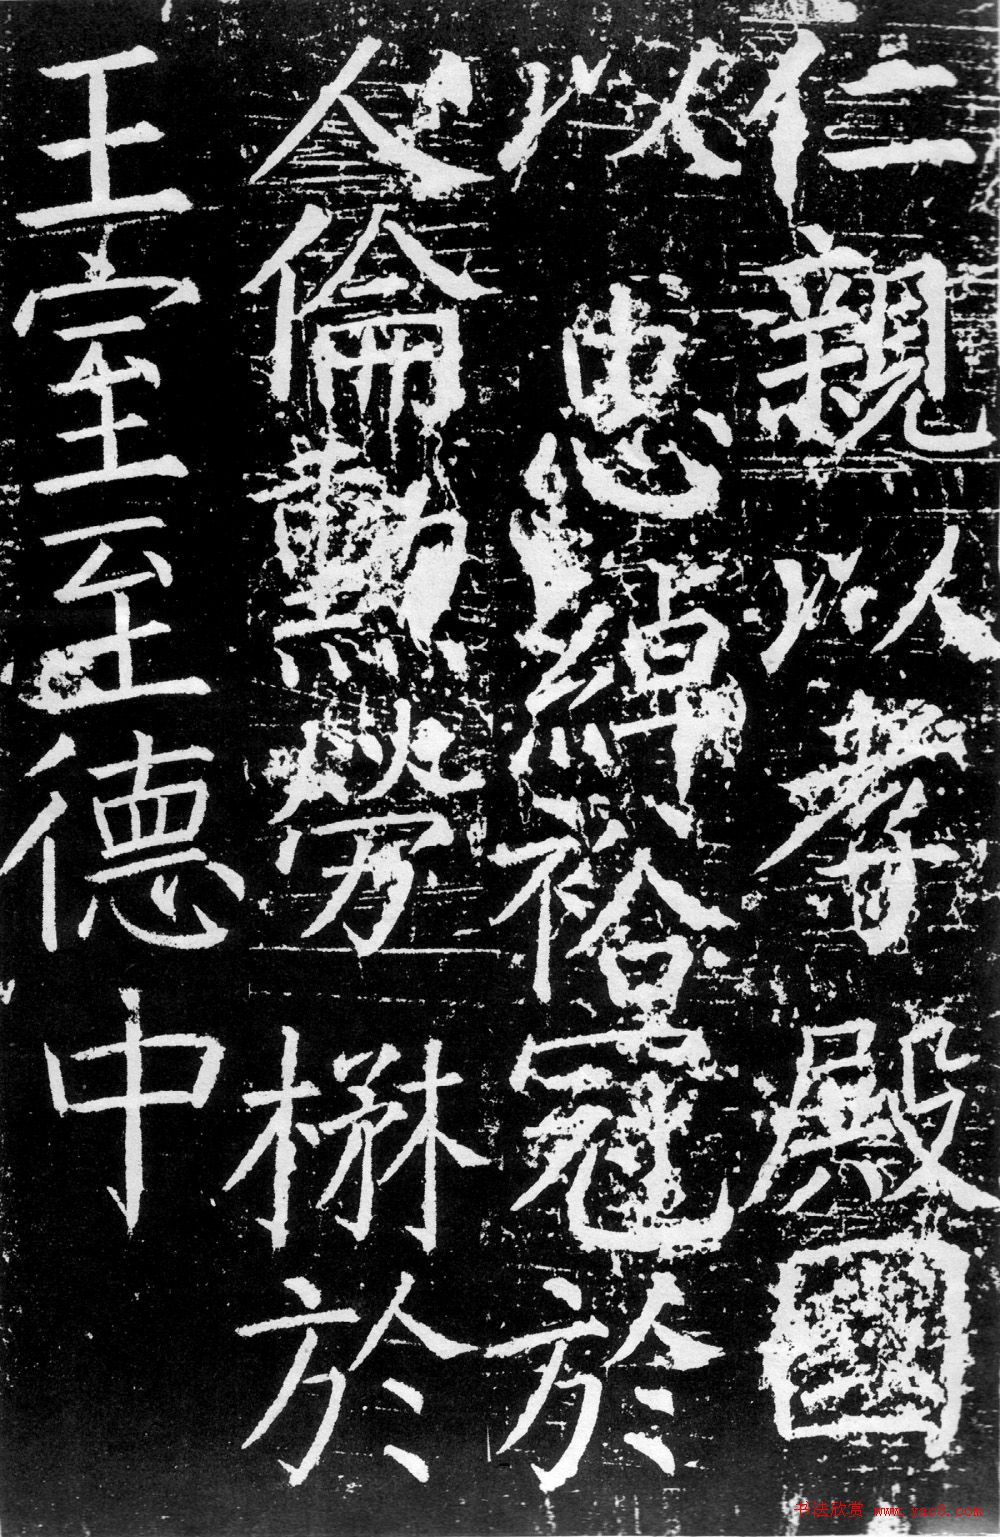 仁親以孝殿國
以忠綽裕冠於
人倫勲勞楙於
王室至德中
书法欣赏 www.yac8.com